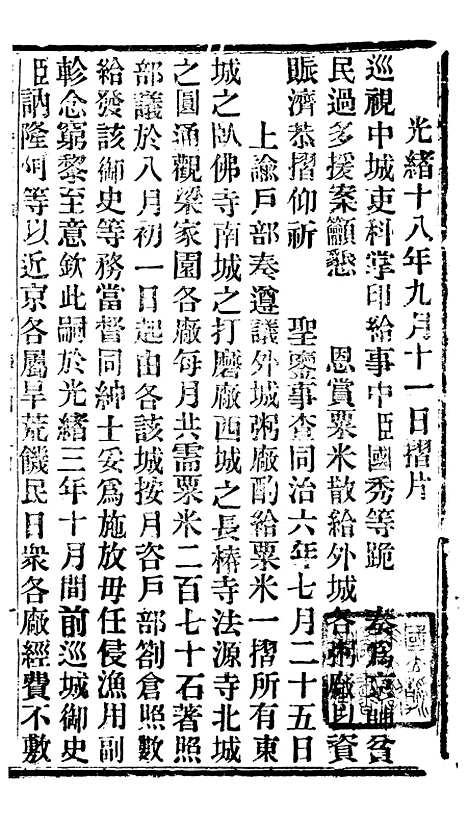 光緒十八年九月十一日摺片
巡視中城吏科掌印給事中臣國秀等跪 奏爲京師貧
民過多援案籲懇 恩賞粟米散給外城各粥廠以資
賑濟恭摺仰祈 聖鑒事查同治六年七月二十五日
上諭戶部奏遵議外城粥廠酌給粟米一摺所有東
城之臥佛寺南城之打磨廠西城之長椿寺法源寺北城
之圓通觀梁家園各廠每月共需粟米二百七十石著照
部議於八月初一日起由各該城按月咨戶部劄倉照數
給發該御史等務當督同紳士妥爲施放毋任侵漁用副
軫念窮黎至意欽此嗣於光緒三年十月間前巡城御史
臣訥隆阿等以近京各屬旱荒饑民日衆各廠經費不敷